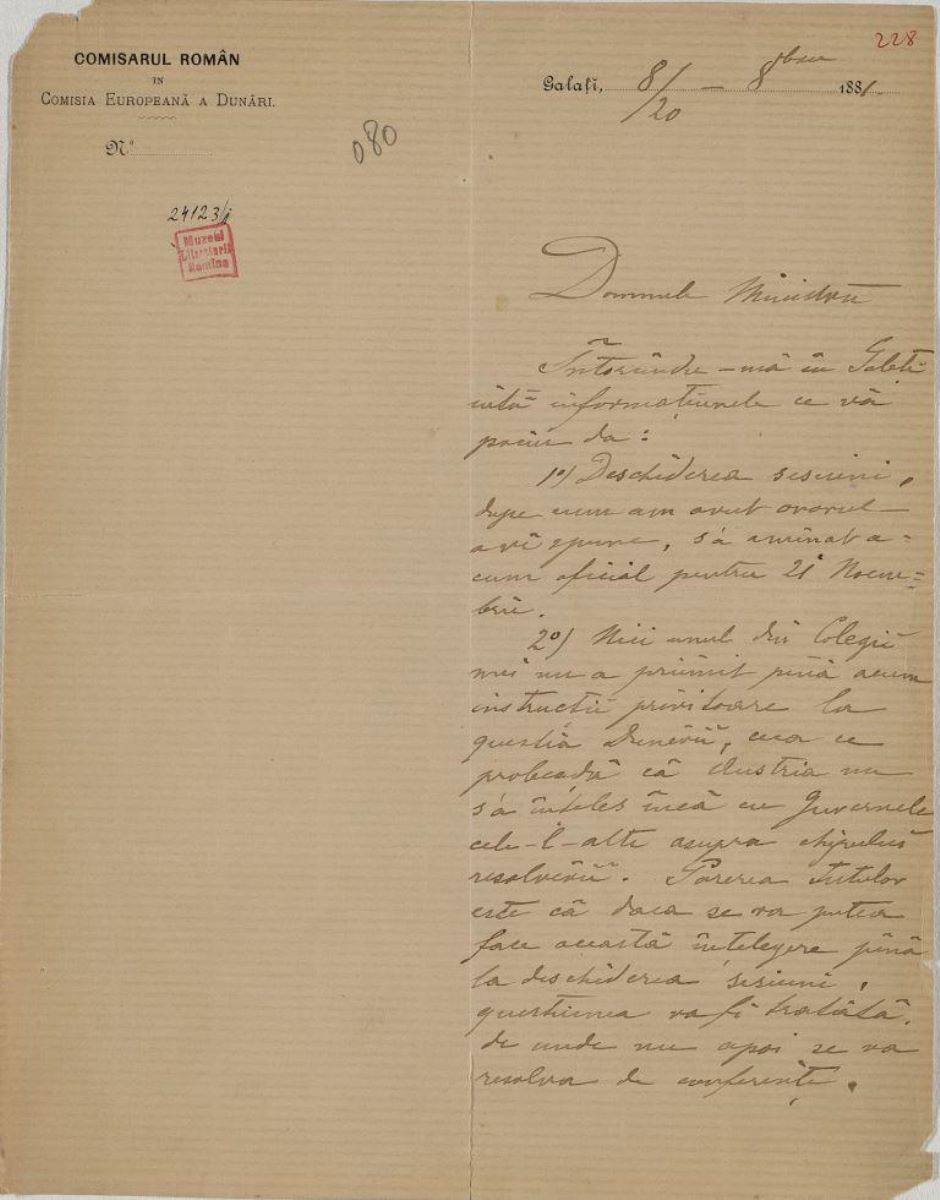 228
COMISARUL ROMÂN
IN
COMISIA EUROPEANĂ A DUNĂRI.
Galați, 8/20 – 8bre 1881
Nº
080
24123/j
Muzeul
Literaturii
Romîne
Domnule Ministru
Întorcîndu-mă în Galați
iată informațiunele ce vă
pociu da:
1º) Deschiderea sesiuni,
dupe cum am avut onorul
a vĕ spune, s'a amînat a=
cum oficial pentru 21 Noem=
brie.
2º) Nici unul din Colegii
mei nu a priimit pînă acum
instrucții privitoare la
questia Dunării, ceea ce
probeadă că Austria nu
s'a înțeles încă cu Guvernele
cele-l-alte asupra chipului
resolvirii. Părerea tutulor
este că daca se va putea
face această înțelegere pînă
la deschiderea sesiuni,
questiunea va fi tratată,
de unde nu apoi se va
resolva de conferințe.